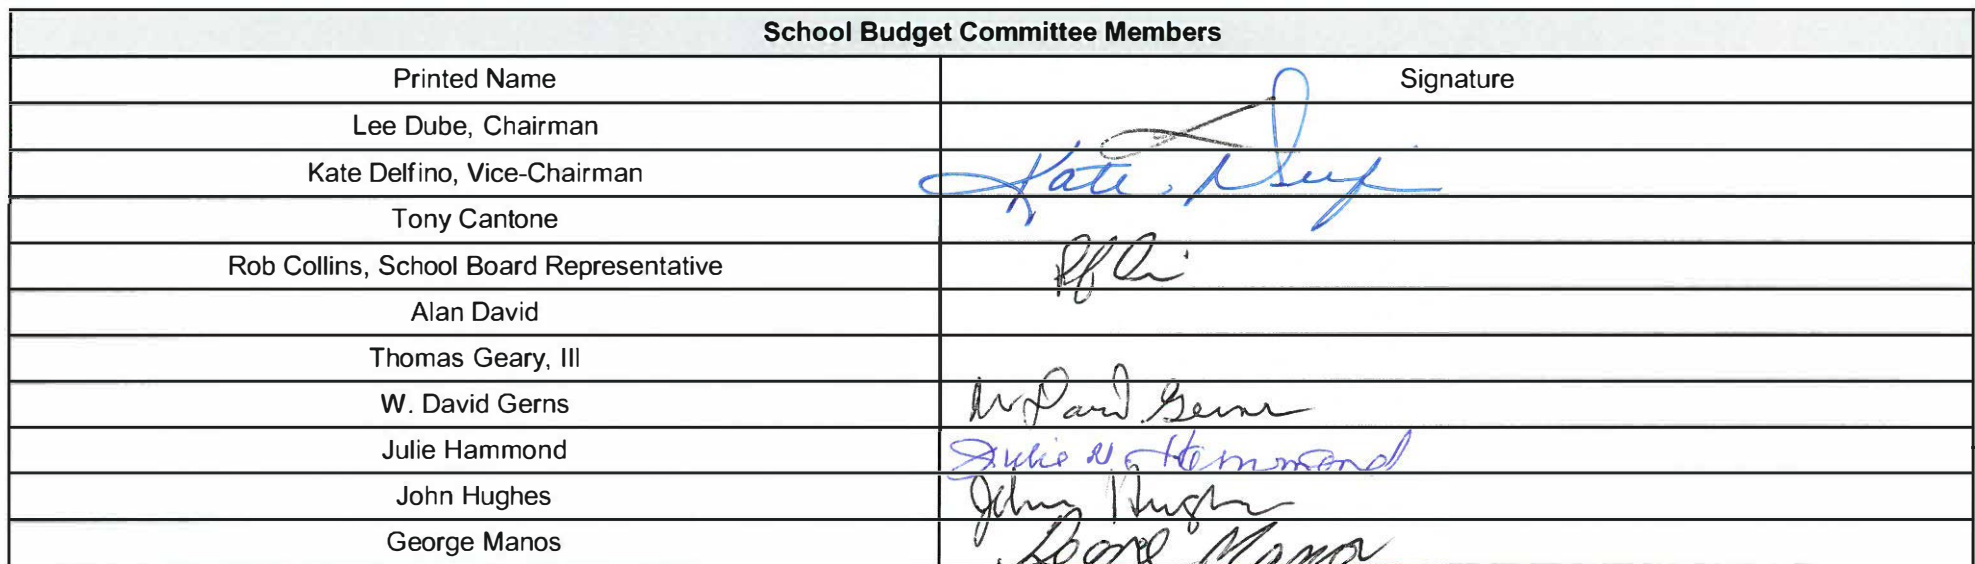 School Budget Committee Members
Printed Name Signature
Lee Dube, Chairman
Kate Delfino, Vice-Chairman Kate
Tony Cantone
Rob Collins, School Board Representative
Alan David
Thomas Geary, III
W. David Gerns W David Gerns
Julie Hammond Julie N. Hammond
John Hughes John Hughes
George Manos George Manos